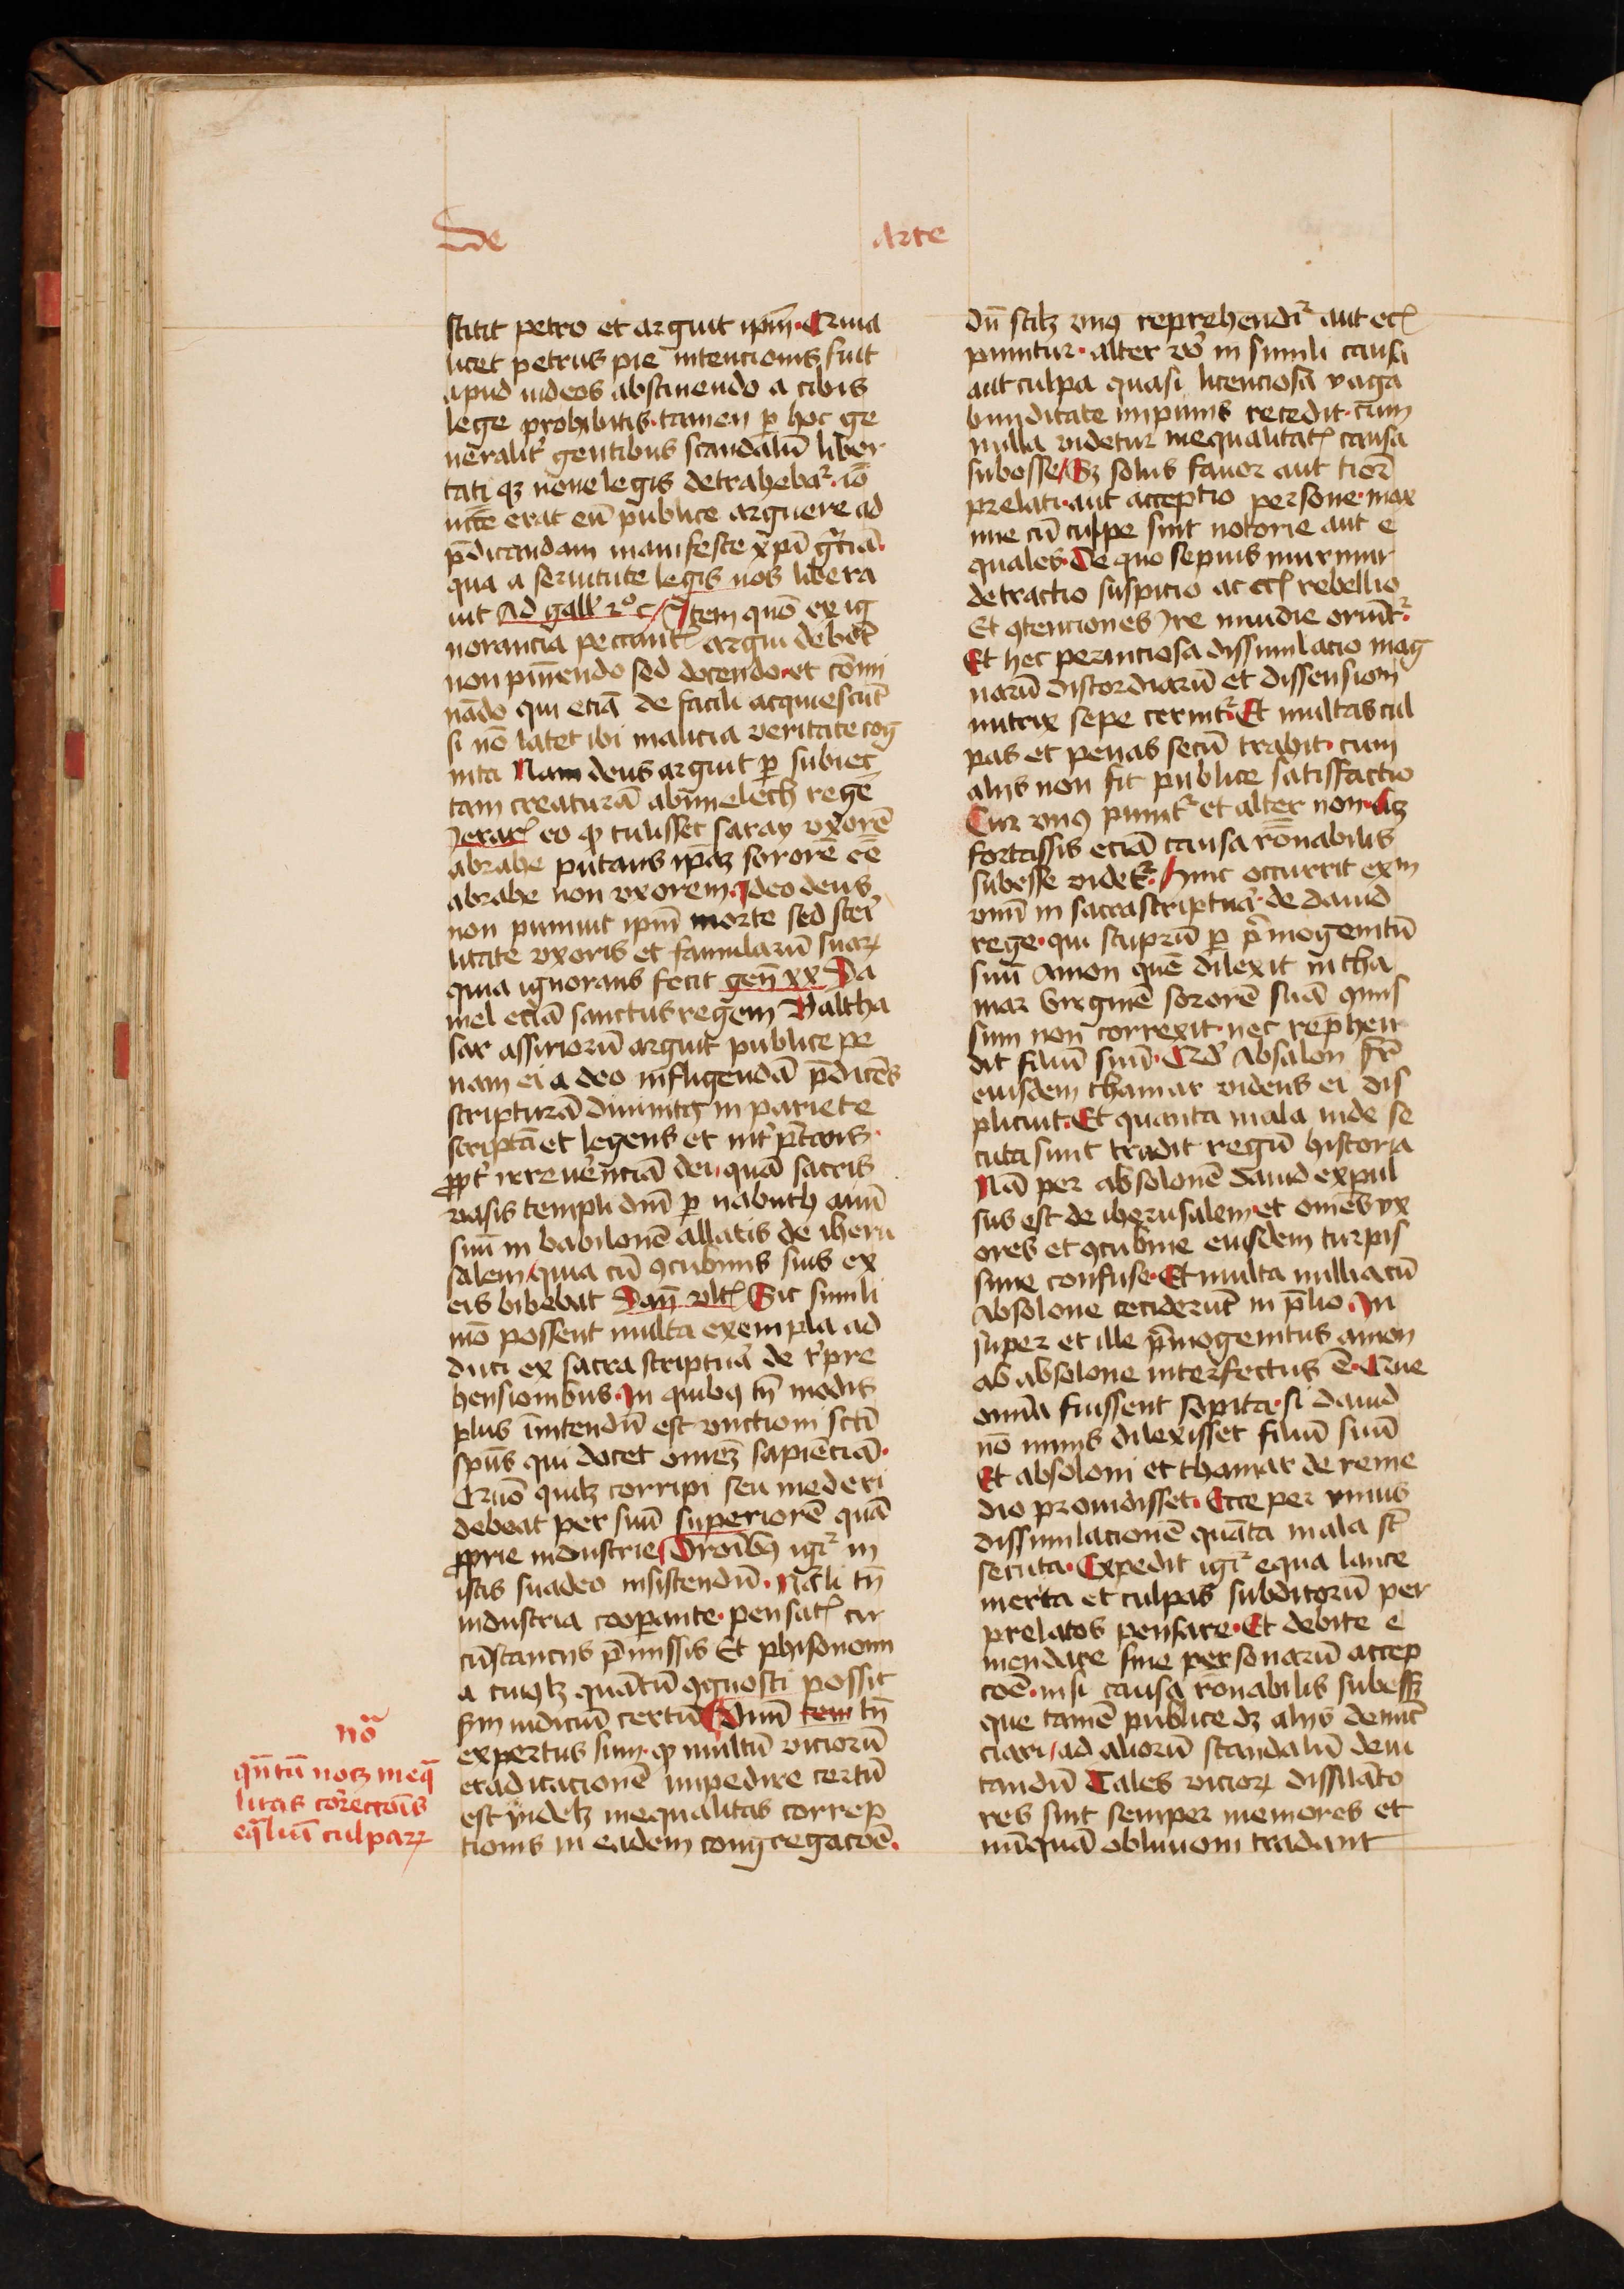 De arte
stitit petro et arguit ipm̄. Quia
licet petrus pie intencionis fuit
apud iudeos abstinendo a cibis
lege prohibitis. tamen ꝑ hoc ge
neralit̾ gentibus scandalū liber
tati qꝫ noue legis detrahebat᷑. iō
necē erat eū publice arguere ad
p̄dicandam manifeste xp̄i gr̄ciā.
qua a seruitute legis nos libera
uit Ad gall̾ 2º c̄ Item quō ex ig
norancia peccant᷑ argui debēt
non puniendo sed docendo. et cōmi
nādo qui eciā de facili acquiescūt
si nō latet ibi malicia veritate cog
nita Nam deus arguit ꝑ subiec
tam creaturā abimelech regē
Jerar᷑ eo ꝙ tulisset saray vxorē
abrahe putans ip̄aꝫ sororē eē
abrahe non vxorem. Ideo deus
non puniuit ipm̄ morte sed steri
litate vxoris et famularū suaꝝ
quia ignorans fecit gen̄ xx Da
niel eciā sanctus regem Baltha
sar assiriorū arguit publice pe
nam ei a deo infligendā p̄dicēs
scripturā diuinitꝰ in pariete
scriptā et legens et int̾p̄tans.
ꝓpt̾ irreuerēnciā dei quā sacris
vasis templi dn̄i ꝑ nabuch auū
suū in babilonē allatis de iheru
salem quia cū ꝯcubinis suis ex
eis bibebat Dan̄ vlt᷑ Sic simili
mō possent multa exempla ad
duci ex sacra scriptura de r̾pre
hensionibus. In quibꝰ tn̄ modis
plus īntendū est vnctioni scti
spūs qui docet omnēꝫ sapienciā.
Quō quilꝫ corripi seu mederi
debeat per suū superiorē quā
ꝓprie industrie Droībꝰ igit᷑ in
istis suadeo insistendū. Nāli tn̄
industria cooperante. pensat᷑ cir
cūstanciis p̄missis Et phisonomi
a cuiꝰlꝫ quātū ꝯgnosci possit
ẜm iudiciū certū Quī tem tn̄
expertus sum. ꝙ multū viciorū
eradicacionē impedire certū
est videlꝫ inequalitas correp
tionis in eadem congregacōē.
nō
qn̄tū nocꝫ ineq̄
litas correcciois
eq̄liū culpaꝝ
dū scilꝫ vnꝰ reprehendit᷑ aut ec᷑
punitur. alter vō in simili causa
aut culpa quasi licenciosa vaga
bunditate impunis recedit. cum
nulla videtur inequalitat᷑ causa
subesse Sꝫ solus fauor aut tior̄
prelati. aut acceptio persone. max
ime cū culpe sint notorie aut e
quales. De quo sepius murmur
detractio suspicio ac ec᷑ rebellio
Et ꝯtenciones Ire inuidie oriūt᷑.
Et hec perniciosa dissimulacio mag
narū discordiarū et dissensionū
nutrix sepe cernit᷑. Et multas cul
pas et penas secū trahit. cum
aliis non fit publice satisfactio
Cur vnꝰ punit᷑ et alter non. Lꝫ
fortassis eciā causa rōnabilis
subesse videt᷑. Hinc occurrit exm
vnū in sacra scriptura. de dauid
rege. qui stuprū ꝑ p̄mogenitū
suū Amon quē dilexit in tha
mar virginē sororē suā ꝯmis
sum non correxit. nec rep̄hen
dit filiū suū. Qd̾ Absalon fr̄
eiusdem thamar videns ei dis
plicuit. Et quanta mala inde se
cuta sunt tradit regū historia
Nā per absolonē dauid expul
sus est de iherusalem. et om̄es vx
ores et ꝯcubine eiusdem turpis
sime confuse. Et multa millia cū
Absolone ceciderūt in p̄lio. In
super et ille p̄mogenitus amon
ab absolone interfectus ē. Que
omnia fuissent sopita. si dauid
nō nimis dilexisset filiū suū
Et absoloni et thamar de reme
dio prouidisset. Ecce per vnius
dissimulacionē quāta mala st̄
secuta. Expedit igit᷑ equa lance
merita et culpas subditorū per
prelatos pensare. Et debite e
mendare sine personarū accep
cōē. nisi causa rōnabilis subessꝫ
que tamē publice dꝫ aliis denūc
ciari ad aliorū scandalū deui
tandū Tales vicioꝝ dissilato
res sint semper memores et
nūquā obliuioni tradant